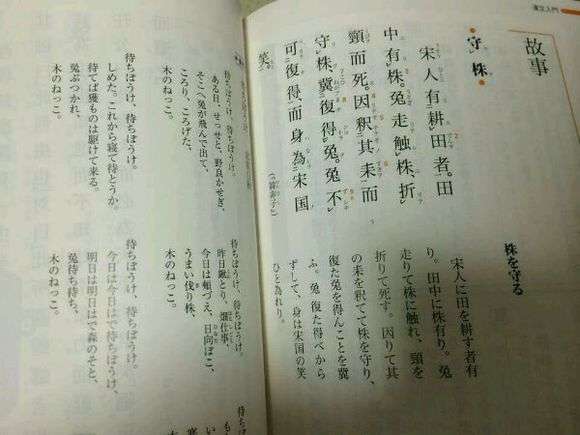 漢文入門
故事
守株
宋人有耕田者。田
中有株。兎走触株、折
頸而死。因釈其耒而
守株、冀復得兎。兎不
可復得、而身為宋国
笑。
(韓非子)
株を守る
宋人に田を耕す者有
り。田中に株有り。兎
走りて株に触れ、頸を
折りて死す。因りて其
の耒を釈てて株を守り、
復た兎を得んことを冀
ふ。兎復た得べから
ずして、身は宋国の笑
ひと為れり。
待ちぼうけ、待ちぼうけ。
ある日、せっせと、野良かせぎ、
そこへ兎が飛んで出て、
ころり、ころげた、
木のねっこ。
待ちぼうけ、待ちぼうけ。
しめた。これから寝て待とうか。
待てば獲ものは駆けて来る。
兎ぶつかれ、
木のねっこ。
待ちぼうけ、待ちぼうけ。
昨日鍬とり、畑仕事、
今日は頬づえ、日向ぼこ、
うまい伐り株、
木のねっこ。
待ちぼうけ、待ちぼうけ。
今日は今日はで待ちぼうけ、
明日は明日はで森のそと、
兎待ち待ち、
木のねっこ。
待ちぼうけ